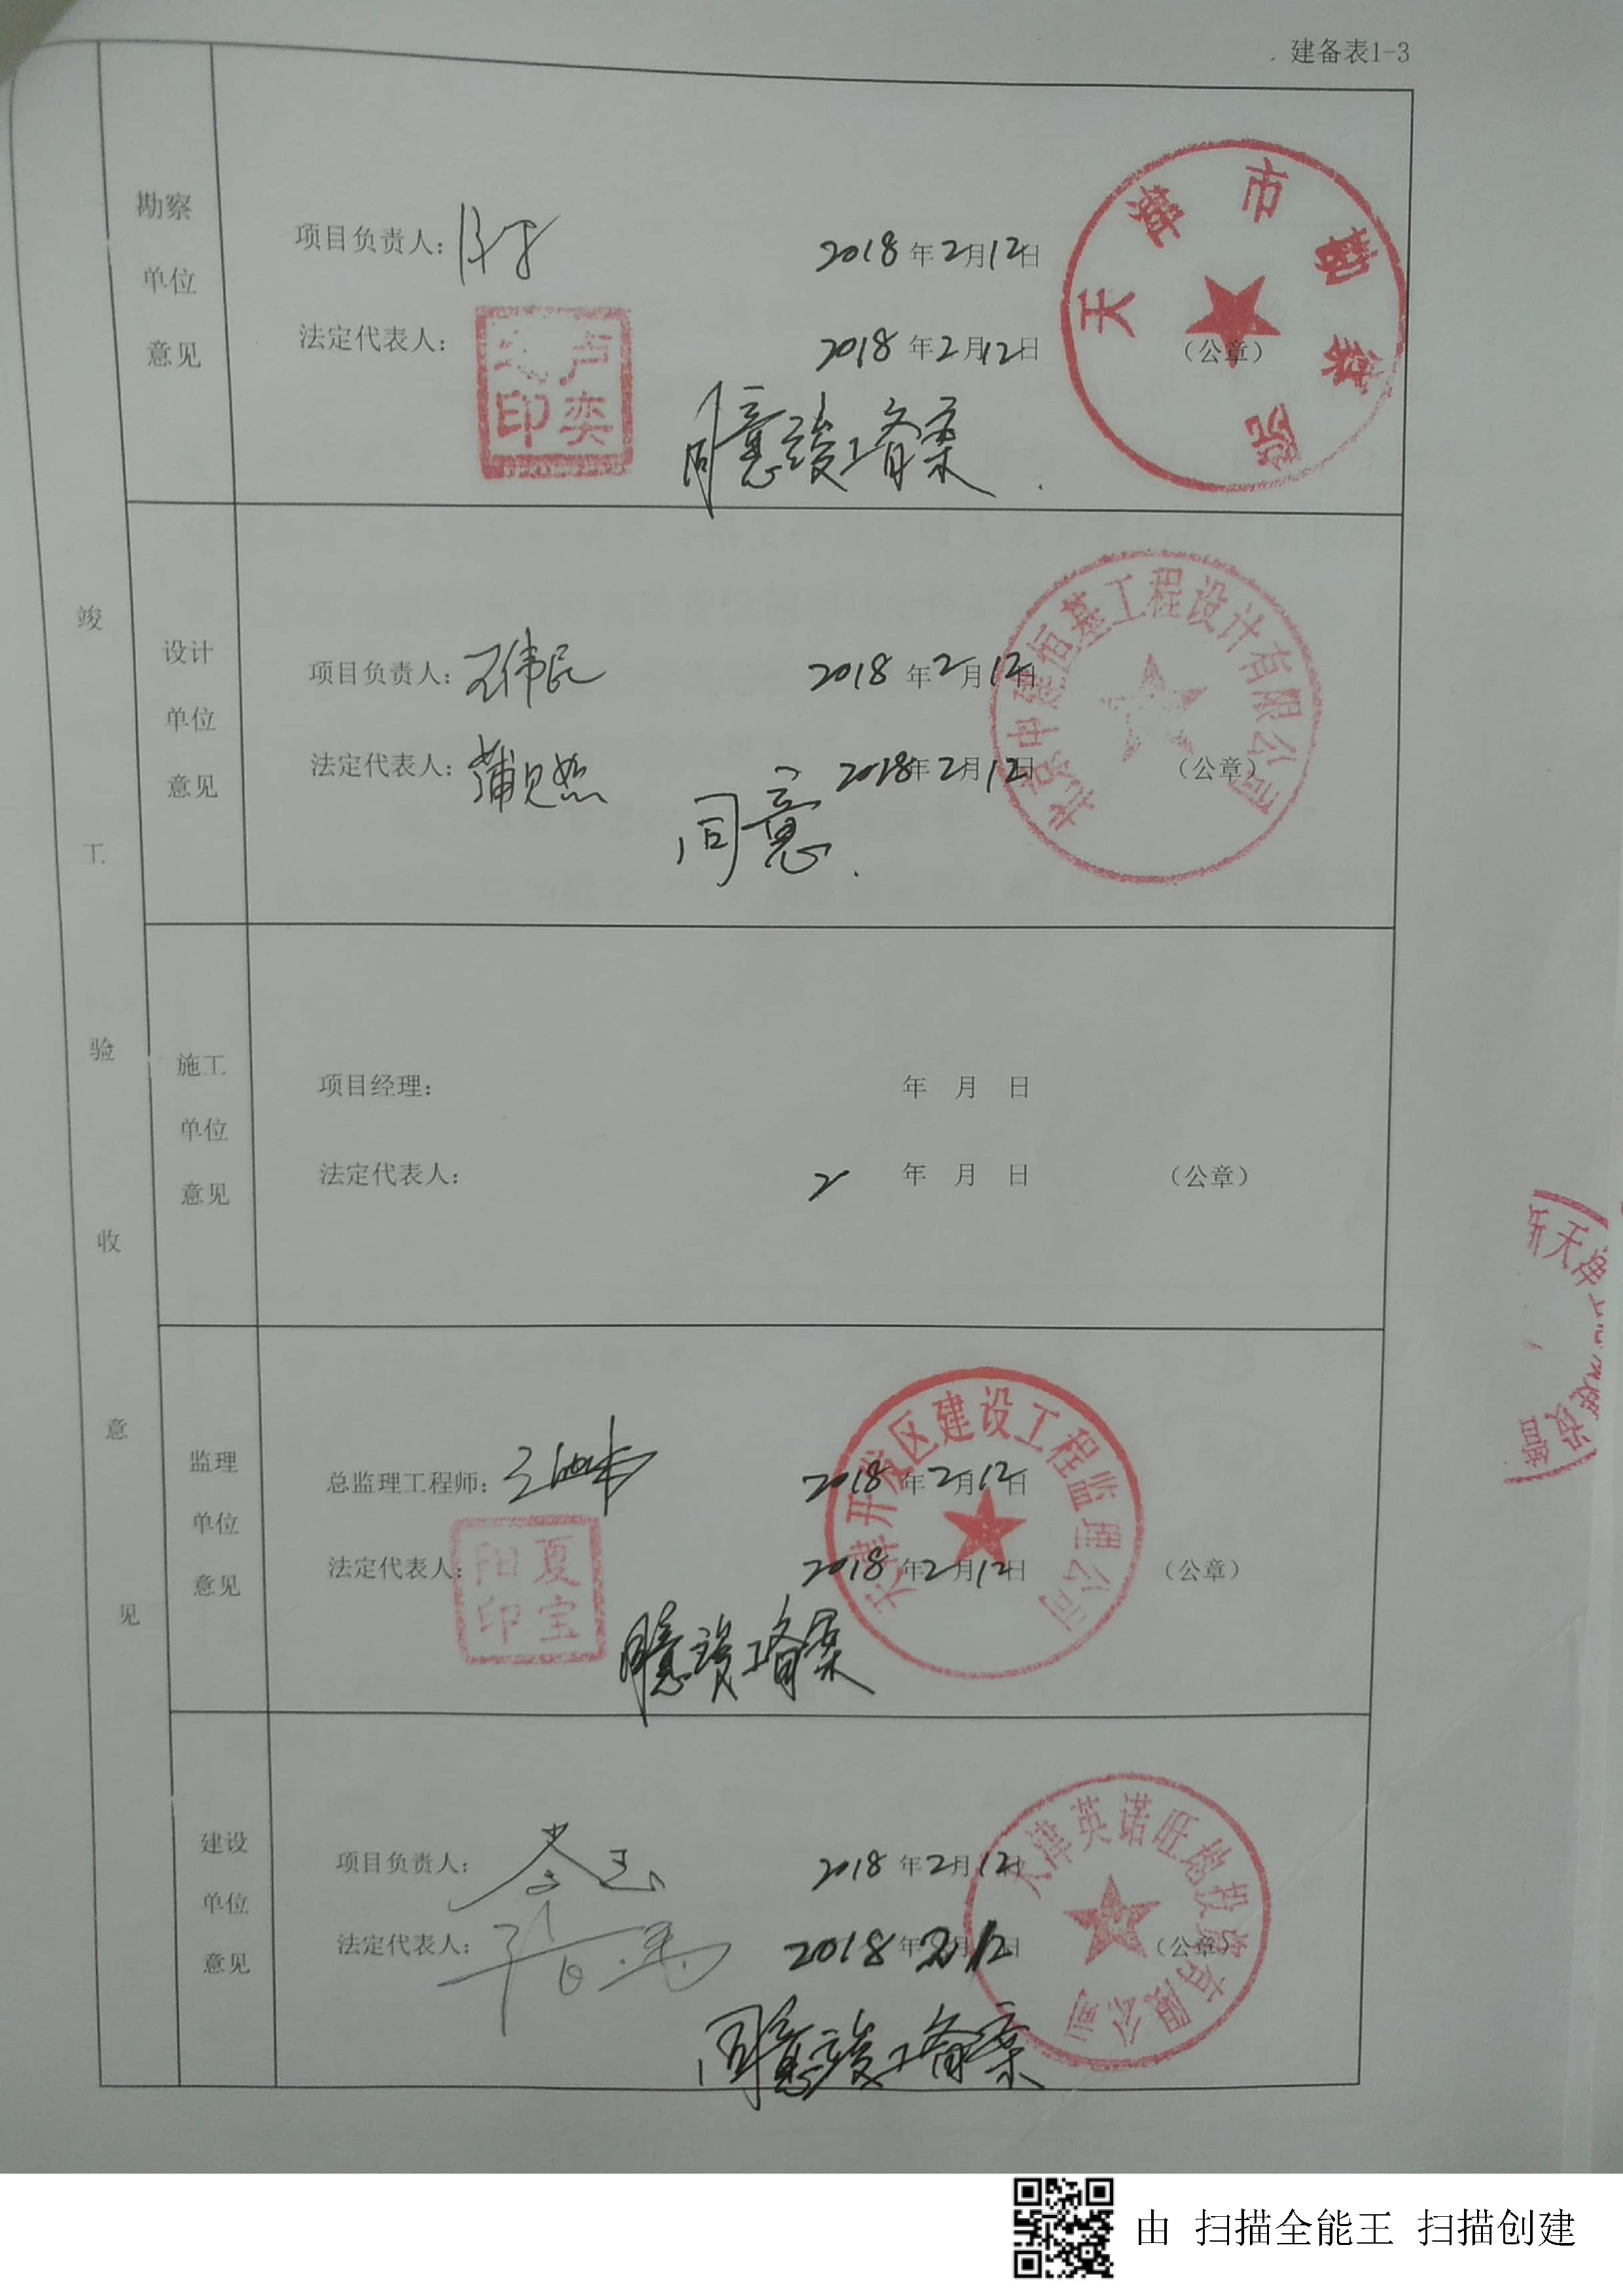 建备表1-3
竣工验收意见
勘察单位意见
项目负责人: 2018年2月12日
法定代表人: 2018年2月12日 (公章)
卢奕印
同意竣工备案
天津市勘察院
设计单位意见
项目负责人: 王伟民 2018年2月12日
法定代表人: 2018年2月12日 (公章)
同意.
北京中建恒基工程设计有限公司
施工单位意见
项目经理: 年 月 日
法定代表人: 2 年 月 日 (公章)
监理单位意见
总监理工程师: 2018年2月12日
法定代表人: 2018年2月12日 (公章)
夏宝阳印
同意竣工备案
天津开发区建设工程监理公司
建设单位意见
项目负责人: 2018年2月12日
法定代表人: 2018年2月12日 (公章)
同意竣工备案
天津英诺旺稳投资有限公司
建设管
由 扫描全能王 扫描创建